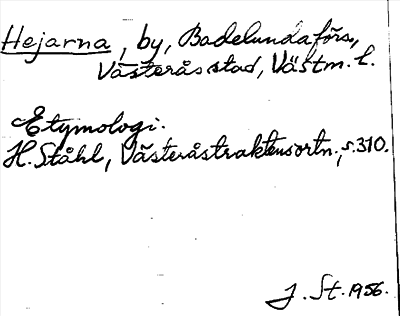 Hejarna, by, Badelunda förs.,
Västerås stad, Västm. l.
Etymologi.
H. Ståhl, Västeråstraktens ortn., s. 310.
J. St. 1956.